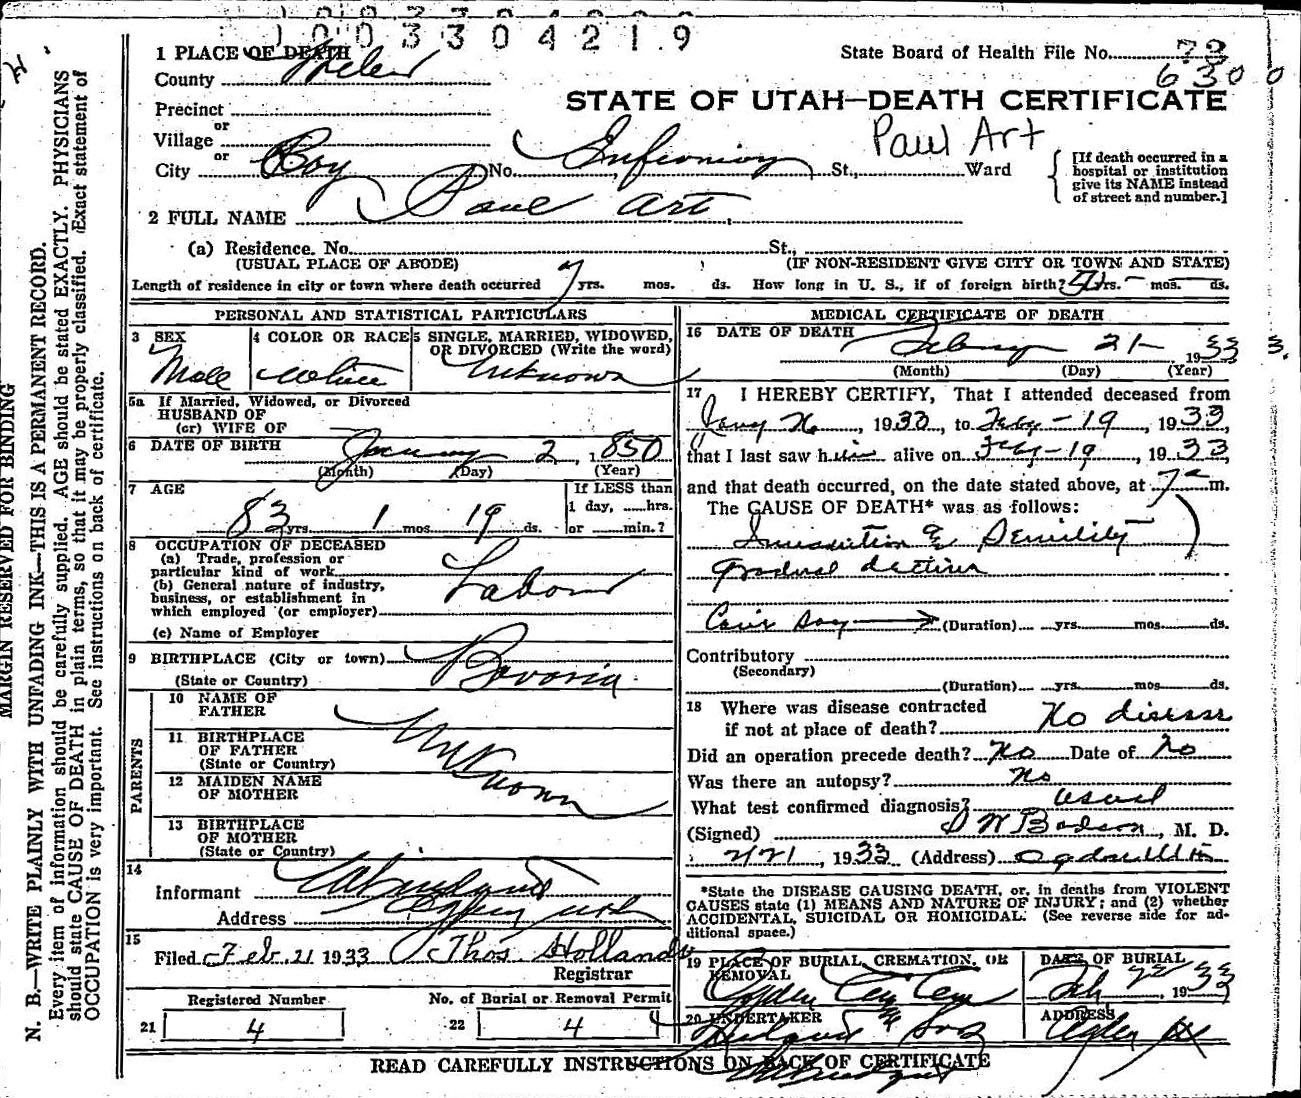 1003304219
1 PLACE OF DEATH
State Board of Health File No. 73
County Weber
6300
Precinct
STATE OF UTAH—DEATH CERTIFICATE
or
Village
Paul Art
or
City Roy No. Infirmary St., Ward
[If death occurred in a hospital or institution give its NAME instead of street and number.]
2 FULL NAME Paul Art
(a) Residence. No. St.,
(USUAL PLACE OF ABODE) (IF NON-RESIDENT GIVE CITY OR TOWN AND STATE)
Length of residence in city or town where death occurred 7 yrs. mos. ds. How long in U. S., if of foreign birth? yrs. — mos. — ds.
PERSONAL AND STATISTICAL PARTICULARS
3 SEX
Male
4 COLOR OR RACE
White
5 SINGLE, MARRIED, WIDOWED, OR DIVORCED (Write the word)
Unknown
5a If Married, Widowed, or Divorced
HUSBAND OF
(or) WIFE OF
6 DATE OF BIRTH January 2, 1850
(Month) (Day) (Year)
7 AGE
83 yrs. 1 mos. 19 ds.
If LESS than
1 day, ......hrs.
or ......min.?
8 OCCUPATION OF DECEASED
(a) Trade, profession or
particular kind of work Labor
(b) General nature of industry,
business, or establishment in
which employed (or employer)
(c) Name of Employer
9 BIRTHPLACE (City or town)
(State or Country) Bavaria
PARENTS
10 NAME OF FATHER
11 BIRTHPLACE OF FATHER
(State or Country)
Unknown
12 MAIDEN NAME OF MOTHER
13 BIRTHPLACE OF MOTHER
(State or Country)
14
Informant
Address Ogden Utah
15
Filed Feb. 21 1933 Thos. Holland
Registrar
Registered Number
21 4
No. of Burial or Removal Permit
22 4
MEDICAL CERTIFICATE OF DEATH
16 DATE OF DEATH
February 21 1933
(Month) (Day) (Year)
17 I HEREBY CERTIFY, That I attended deceased from
, 1933, to Feby - 19, 1933
that I last saw him alive on Feby - 19, 1933,
and that death occurred, on the date stated above, at 7 m.
The CAUSE OF DEATH* was as follows:
& Senility
Gradual decline
(Duration) yrs. mos. ds.
Contributory
(Secondary)
(Duration) yrs. mos. ds.
18 Where was disease contracted
if not at place of death? No disease
Did an operation precede death? No Date of No
Was there an autopsy? No
What test confirmed diagnosis? usual
(Signed) , M. D.
2/21, 1933 (Address) Ogden Utah
*State the DISEASE CAUSING DEATH, or, in deaths from VIOLENT
CAUSES state (1) MEANS AND NATURE OF INJURY; and (2) whether
ACCIDENTAL, SUICIDAL OR HOMICIDAL. (See reverse side for ad-
ditional space.)
19 PLACE OF BURIAL, CREMATION, OR REMOVAL
Ogden City Cem
DATE OF BURIAL
Feb 22, 1933
20 UNDERTAKER
& Sons
ADDRESS
Ogden Ut
READ CAREFULLY INSTRUCTIONS ON BACK OF CERTIFICATE
MARGIN RESERVED FOR BINDING
N. B.—WRITE PLAINLY WITH UNFADING INK—THIS IS A PERMANENT RECORD.
Every item of information should be carefully supplied. AGE should be stated EXACTLY. PHYSICIANS
should state CAUSE OF DEATH in plain terms, so that it may be properly classified. Exact statement of
OCCUPATION is very important. See instructions on back of certificate.